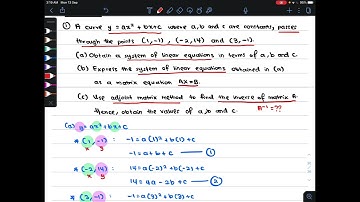 2:19 AM Mon 13 Sep
① A curve y = ax² + bx + c where a, b and c are constants, passes
through the points (1,-1), (-2,14) and (3,-1).
(a) Obtain a system of linear equations in terms of a, b and c.
(b) Express the system of linear equations obtained in (a)
as a matrix equation AX=B.
(c) Use adjoint matrix method to find the inverse of matrix A.
Hence, obtain the values of a, b and c. A⁻¹ = ??
(a) y = ax² + bx + c
* (1, -1) : -1 = a(1)² + b(1) + c
x y
-1 = a + b + c ①
* (-2, 14) : 14 = a(-2)² + b(-2) + c
x y
14 = 4a - 2b + c ②
* (3, -1) : -1 = a(3)² + b(3) + c